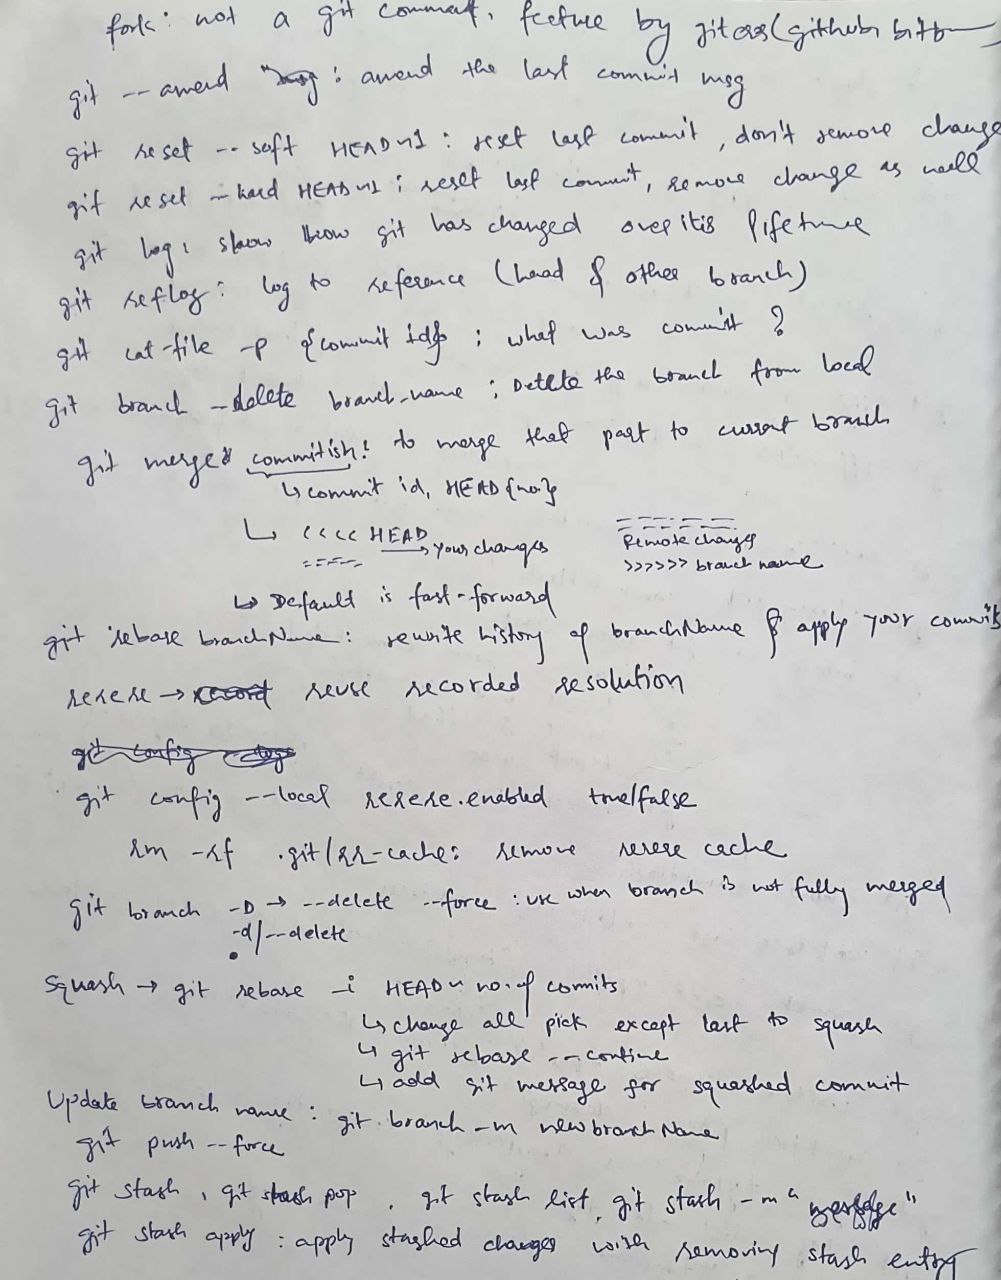 fork: not a git command, feature by git oss (github, bitb
git --amend msg : amend the last commit msg
git reset --soft HEAD~1 : reset last commit, don't remove change
git reset --hard HEAD~1 : reset last commit, remove change as well
git log : show how git has changed over it's lifetime
git reflog : log to reference (head & other branch)
git cat-file -p {commit id} : what was commit ?
git branch --delete branch_name : Delete the branch from local
git merge commitish : to merge that part to current branch
↳ commit id, HEAD {no.}
↳ <<<< HEAD
→ your changes
=====
======
Remote changes
>>>>>> branch name
↳ Default is fast-forward
git rebase branchName : rewrite history of branchName & apply your commits
rerere → record reuse recorded resolution
git config
git config --local rerere.enabled true/false
rm -rf .git/rr-cache : remove rerere cache
git branch -D → --delete --force : use when branch is not fully merged
-d/--delete
Squash → git rebase -i HEAD~ no. of commits
↳ change all pick except last to squash
↳ git rebase --contine
↳ add git message for squashed commit
Update branch name : git branch -m newbranchName
git push --force
git stash, git stash pop, git stash list, git stash -m "message"
git stash apply : apply stashed changes with removing stash entry